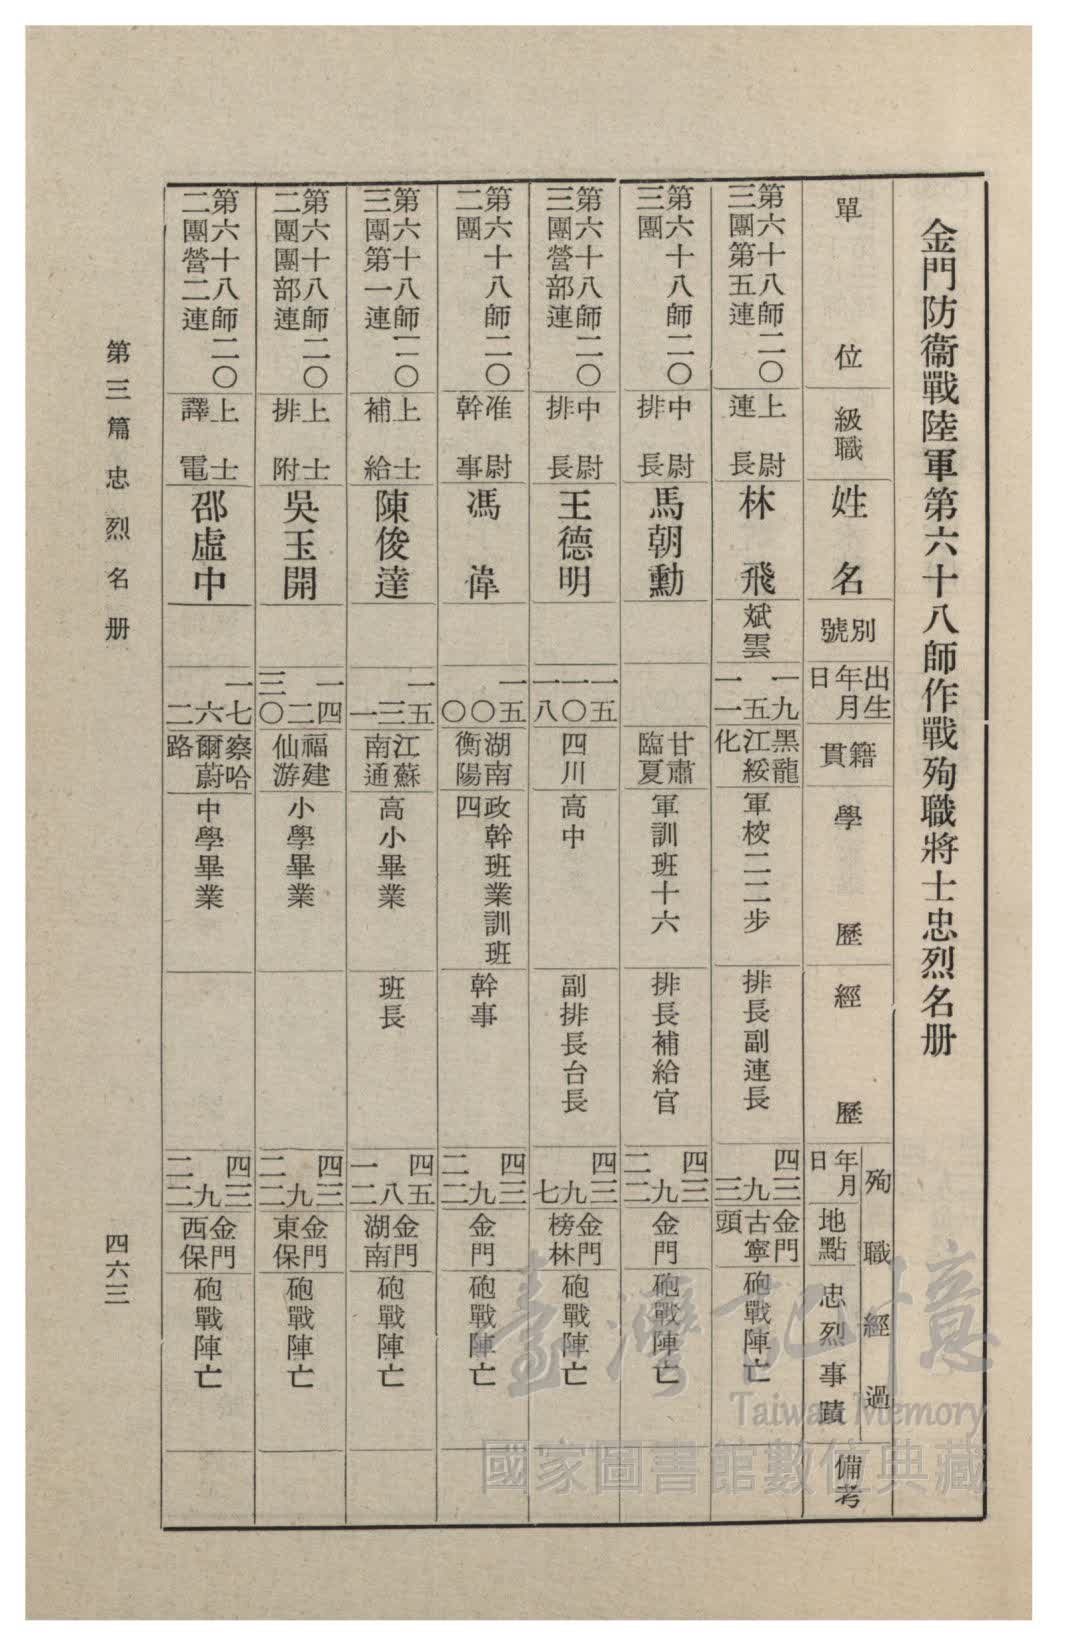 金門防衞戰陸軍第六十八師作戰殉職將士忠烈名册
單位
級職
姓名
別號
出生
年月
日
籍貫
學歷
經歷
殉職經過
年月
日
地點
忠烈事蹟
備考
第六十八師二〇
三團第五連
上尉
連長
林飛
斌雲
一九
五
一一
黑龍
江綏
化
軍校二二步
排長副連長
四三
九
三
金門
古寧
頭
砲戰陣亡
第六十八師二〇
三團
中尉
排長
馬朝勳
甘肅
臨夏
軍訓班十六
排長補給官
四三
九
二二
金門
砲戰陣亡
第六十八師二〇
三團營部連
中尉
排長
王德明
一五
一〇
一八
四川
高中
副排長台長
四三
九
七
金門
榜林
砲戰陣亡
第六十八師二〇
二團
准尉
幹事
馮偉
一五
〇
〇
湖南
衡陽
政幹班業訓班
四
幹事
四三
九
二二
金門
砲戰陣亡
第六十八師二〇
三團第一連
上士
補給
陳俊達
一五
三
一
江蘇
南通
高小畢業
班長
四五
八
一二
金門
湖南
砲戰陣亡
第六十八師二〇
二團團部連
上士
排附
吳玉開
一四
二
三〇
福建
仙游
小學畢業
四三
九
二二
金門
東保
砲戰陣亡
第六十八師二〇
二團營二連
上士
譯電
邵虛中
一七
六
二
察哈
爾蔚
路
中學畢業
四三
九
二二
金門
西保
砲戰陣亡
第三篇忠烈名册
四六三
臺灣記憶
Taiwan Memory
國家圖書館數位典藏